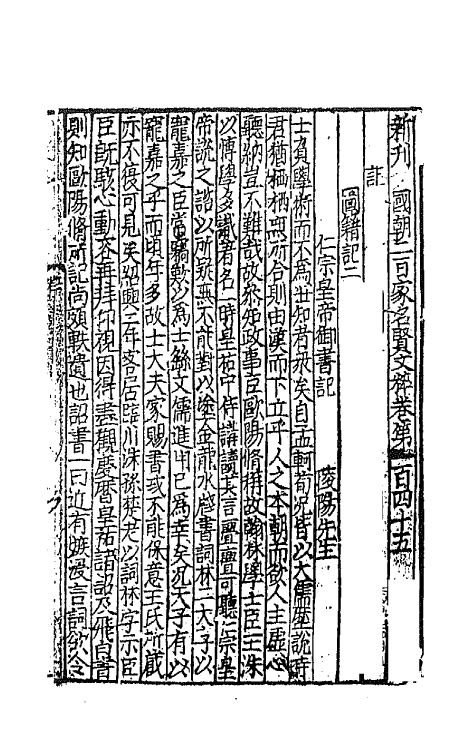 新刊國朝二百家名賢文粹卷第一百四十五
記
圖籍記二
仁宗皇帝御書記 陵陽先生
士負學術而不為世知者衆矣自孟軻荀况皆以大儒歷說時
君猶栖栖無所合則由漢而下立乎人之本朝而欲人主虛心
聽納豈不難哉故參知政事臣歐陽脩撰故翰林學士臣王洙
以博學多識著名一時皇祐中侍講讀其言亹亹可聽仁宗皇
帝說之語以所疑無不能對以塗金龍水牋書詞林二大字以
寵嘉之臣嘗竊歎以為士繇文儒進中已為幸矣况天子有以
寵嘉之乎而頃年多故士大夫家賜書或不能保意王氏所藏
亦不復可見矣紹興二年客居臨川洙孫楚老以詞林字示臣
臣既駭心動忞再拜仰視因得盡觀慶曆皇祐諸詔及飛白書
則知歐陽脩所記尚頗軼遺也詔書一曰近有嫉謾言詞欲令